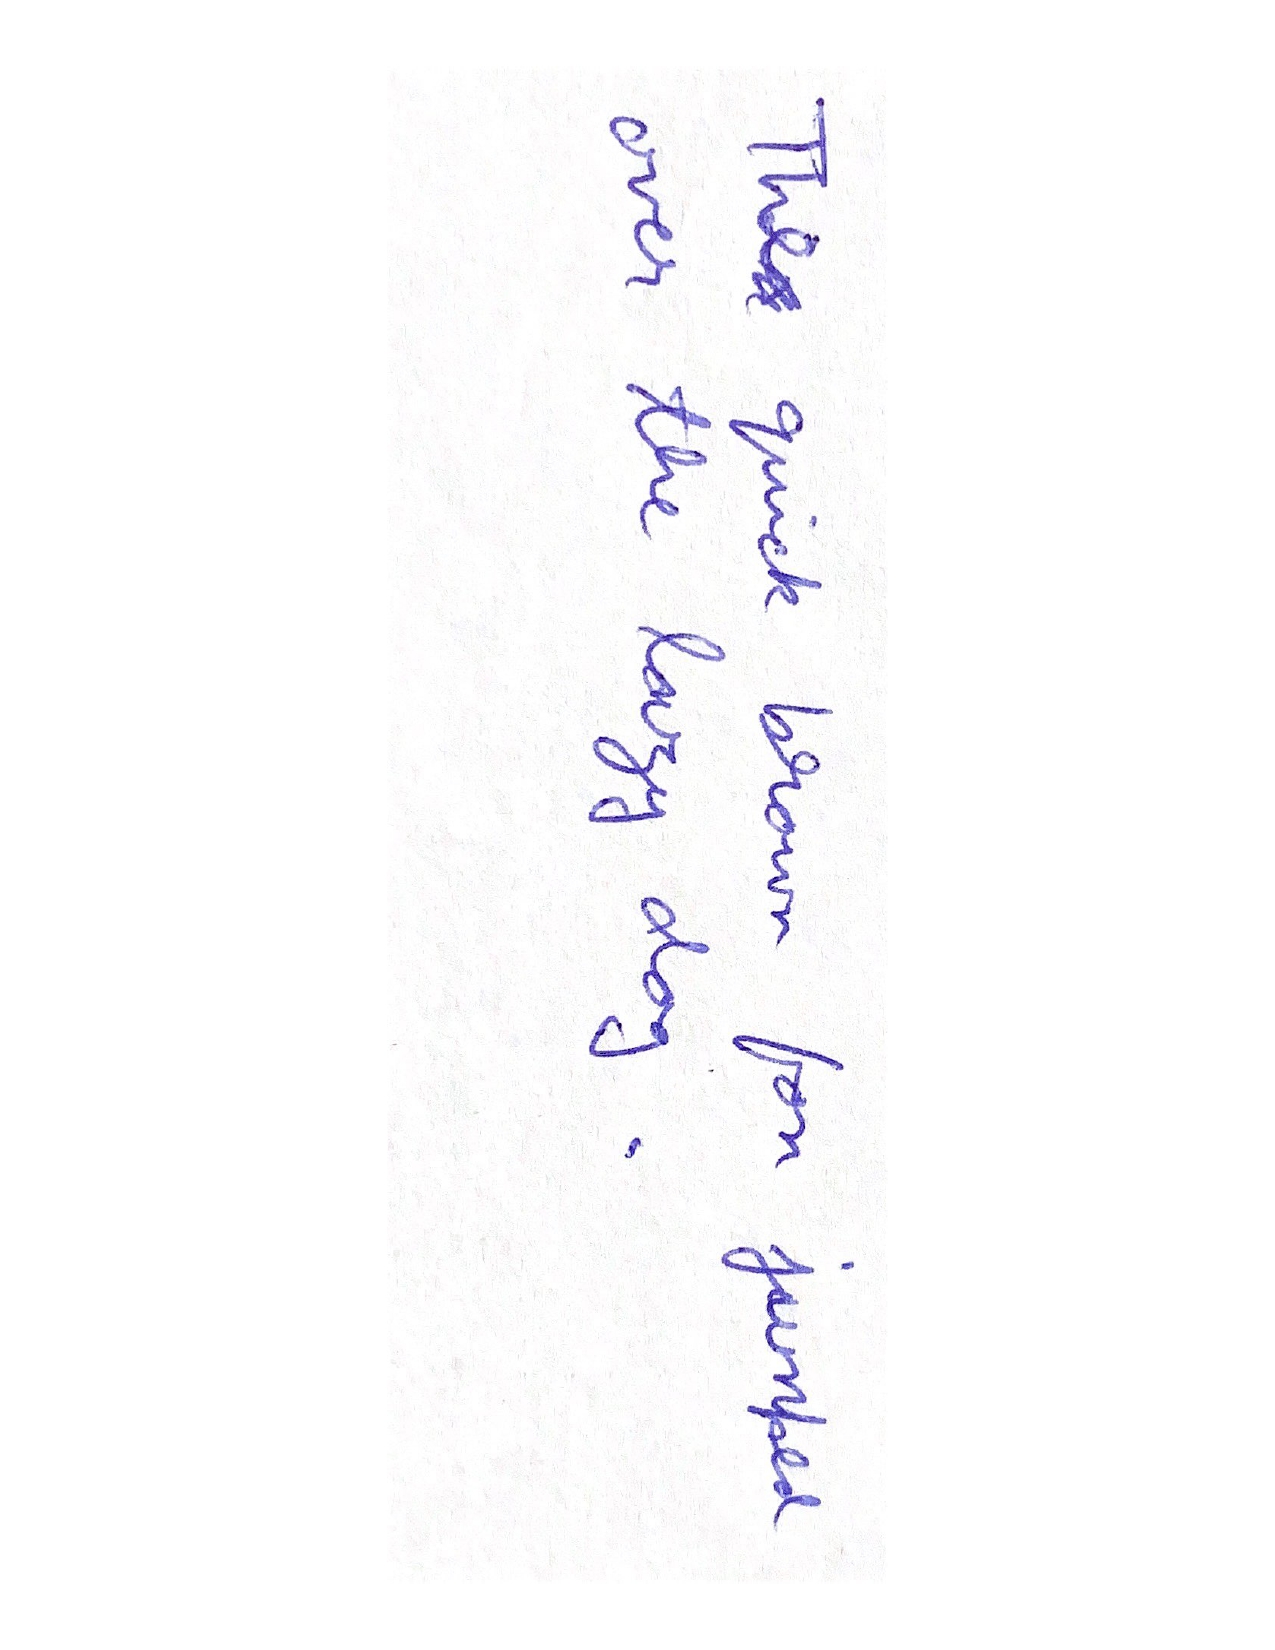 The quick brown fox jumped
over the lazy dog .